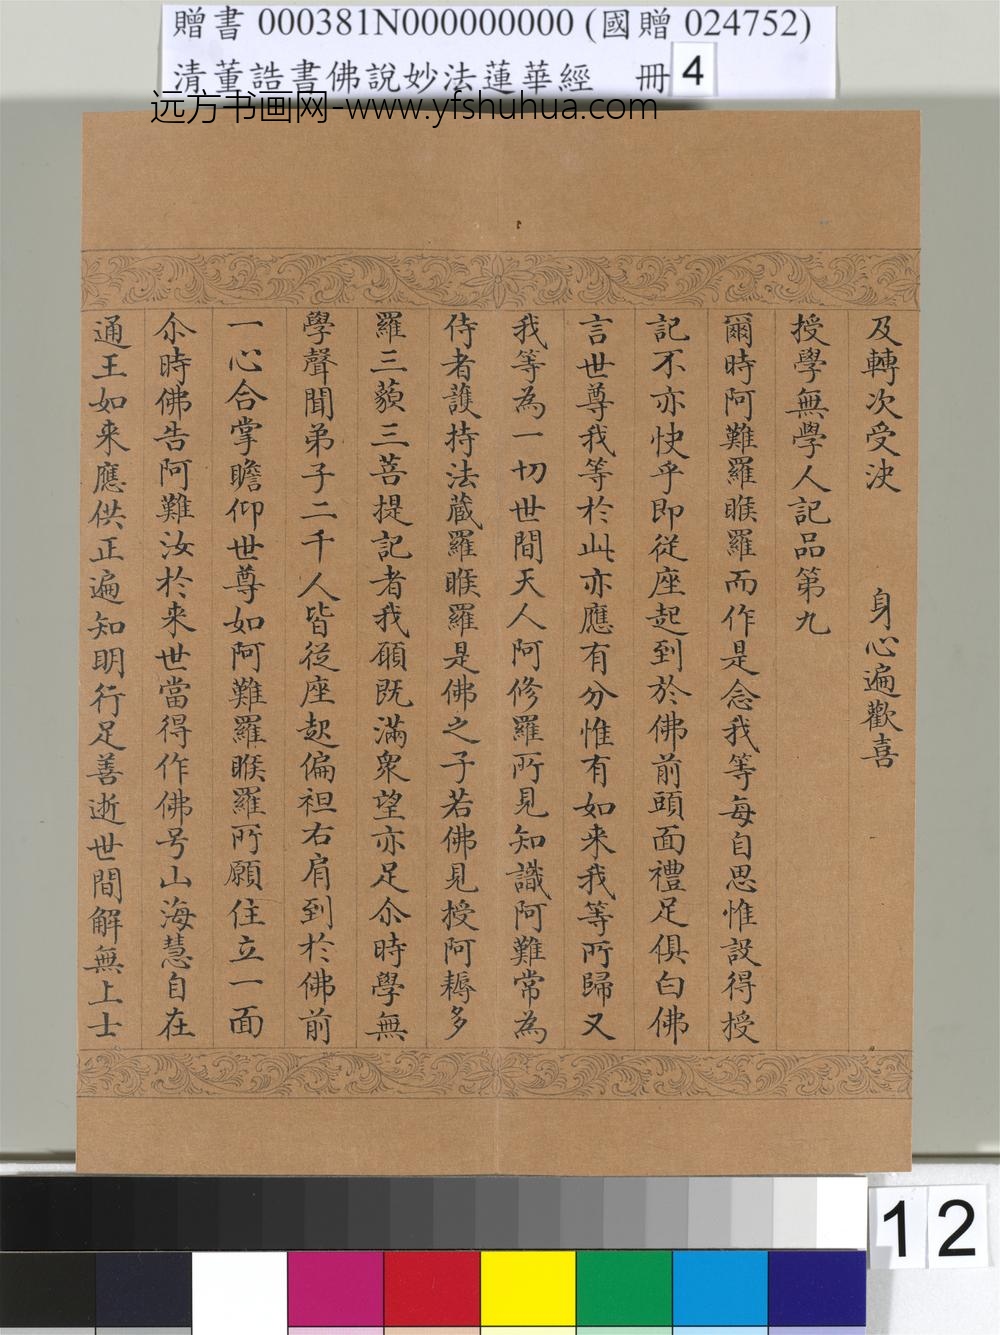 贈書 000381N000000000 (國贈 024752)
清董誥書佛說妙法蓮華經 冊 4
远方书画网-www.yfshuhua.com
及轉次受决 身心遍歡喜
授學無學人記品第九
爾時阿難羅睺羅而作是念我等每自思惟設得授
記不亦快乎即從座起到於佛前頭面禮足俱白佛
言世尊我等於此亦應有分惟有如来我等所歸又
我等為一切世間天人阿修羅所見知識阿難常為
侍者護持法藏羅睺羅是佛之子若佛見授阿耨多
羅三藐三菩提記者我願既滿衆望亦足尒時學無
學聲聞弟子二千人皆從座起偏袒右肩到於佛前
一心合掌瞻仰世尊如阿難羅睺羅所願住立一面
尒時佛告阿難汝於来世當得作佛号山海慧自在
通王如来應供正遍知明行足善逝世間解無上士
12